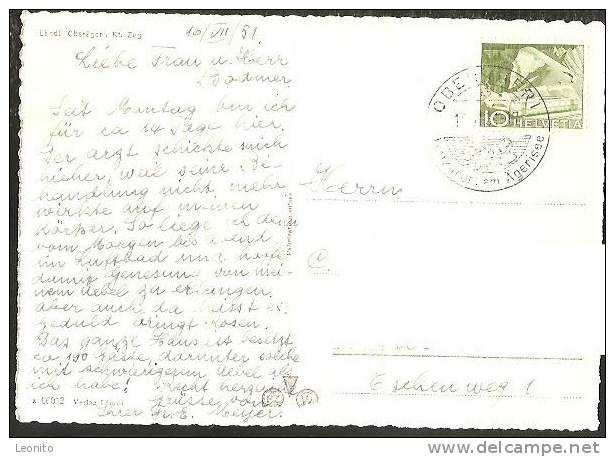 Ländli Oberägeri, Kt. Zug
16/VII/51
Liebe Frau u. Herr
Bodmer
Seit Montag bin ich
für ca 14 Tage hier.
Der arzt schickte mich
hieher, weil seine Be
handlung nicht mehr
wirkte auf meinen
Körper. So liege ich denn
vom Morgen bis abend
im Luftbad und hoffe
damit Genesung von mei-
nem Uebel zu erlangen.
aber auch da heisst es
geduld bringt Rosen.
Das ganze Haus ist besetzt
ca 190 Gäste, darunter solche
mit schwierigerem Uebel als
ich habe! Recht herzliche
Grüsse von
Ihrer Fr. E. Meyer.
Verlag Ländli
HELVETIA
10
OBERÄGERI
am Ägerisee
Herrn
@
Eschenweg 1
Leonito
www.delcampe.net